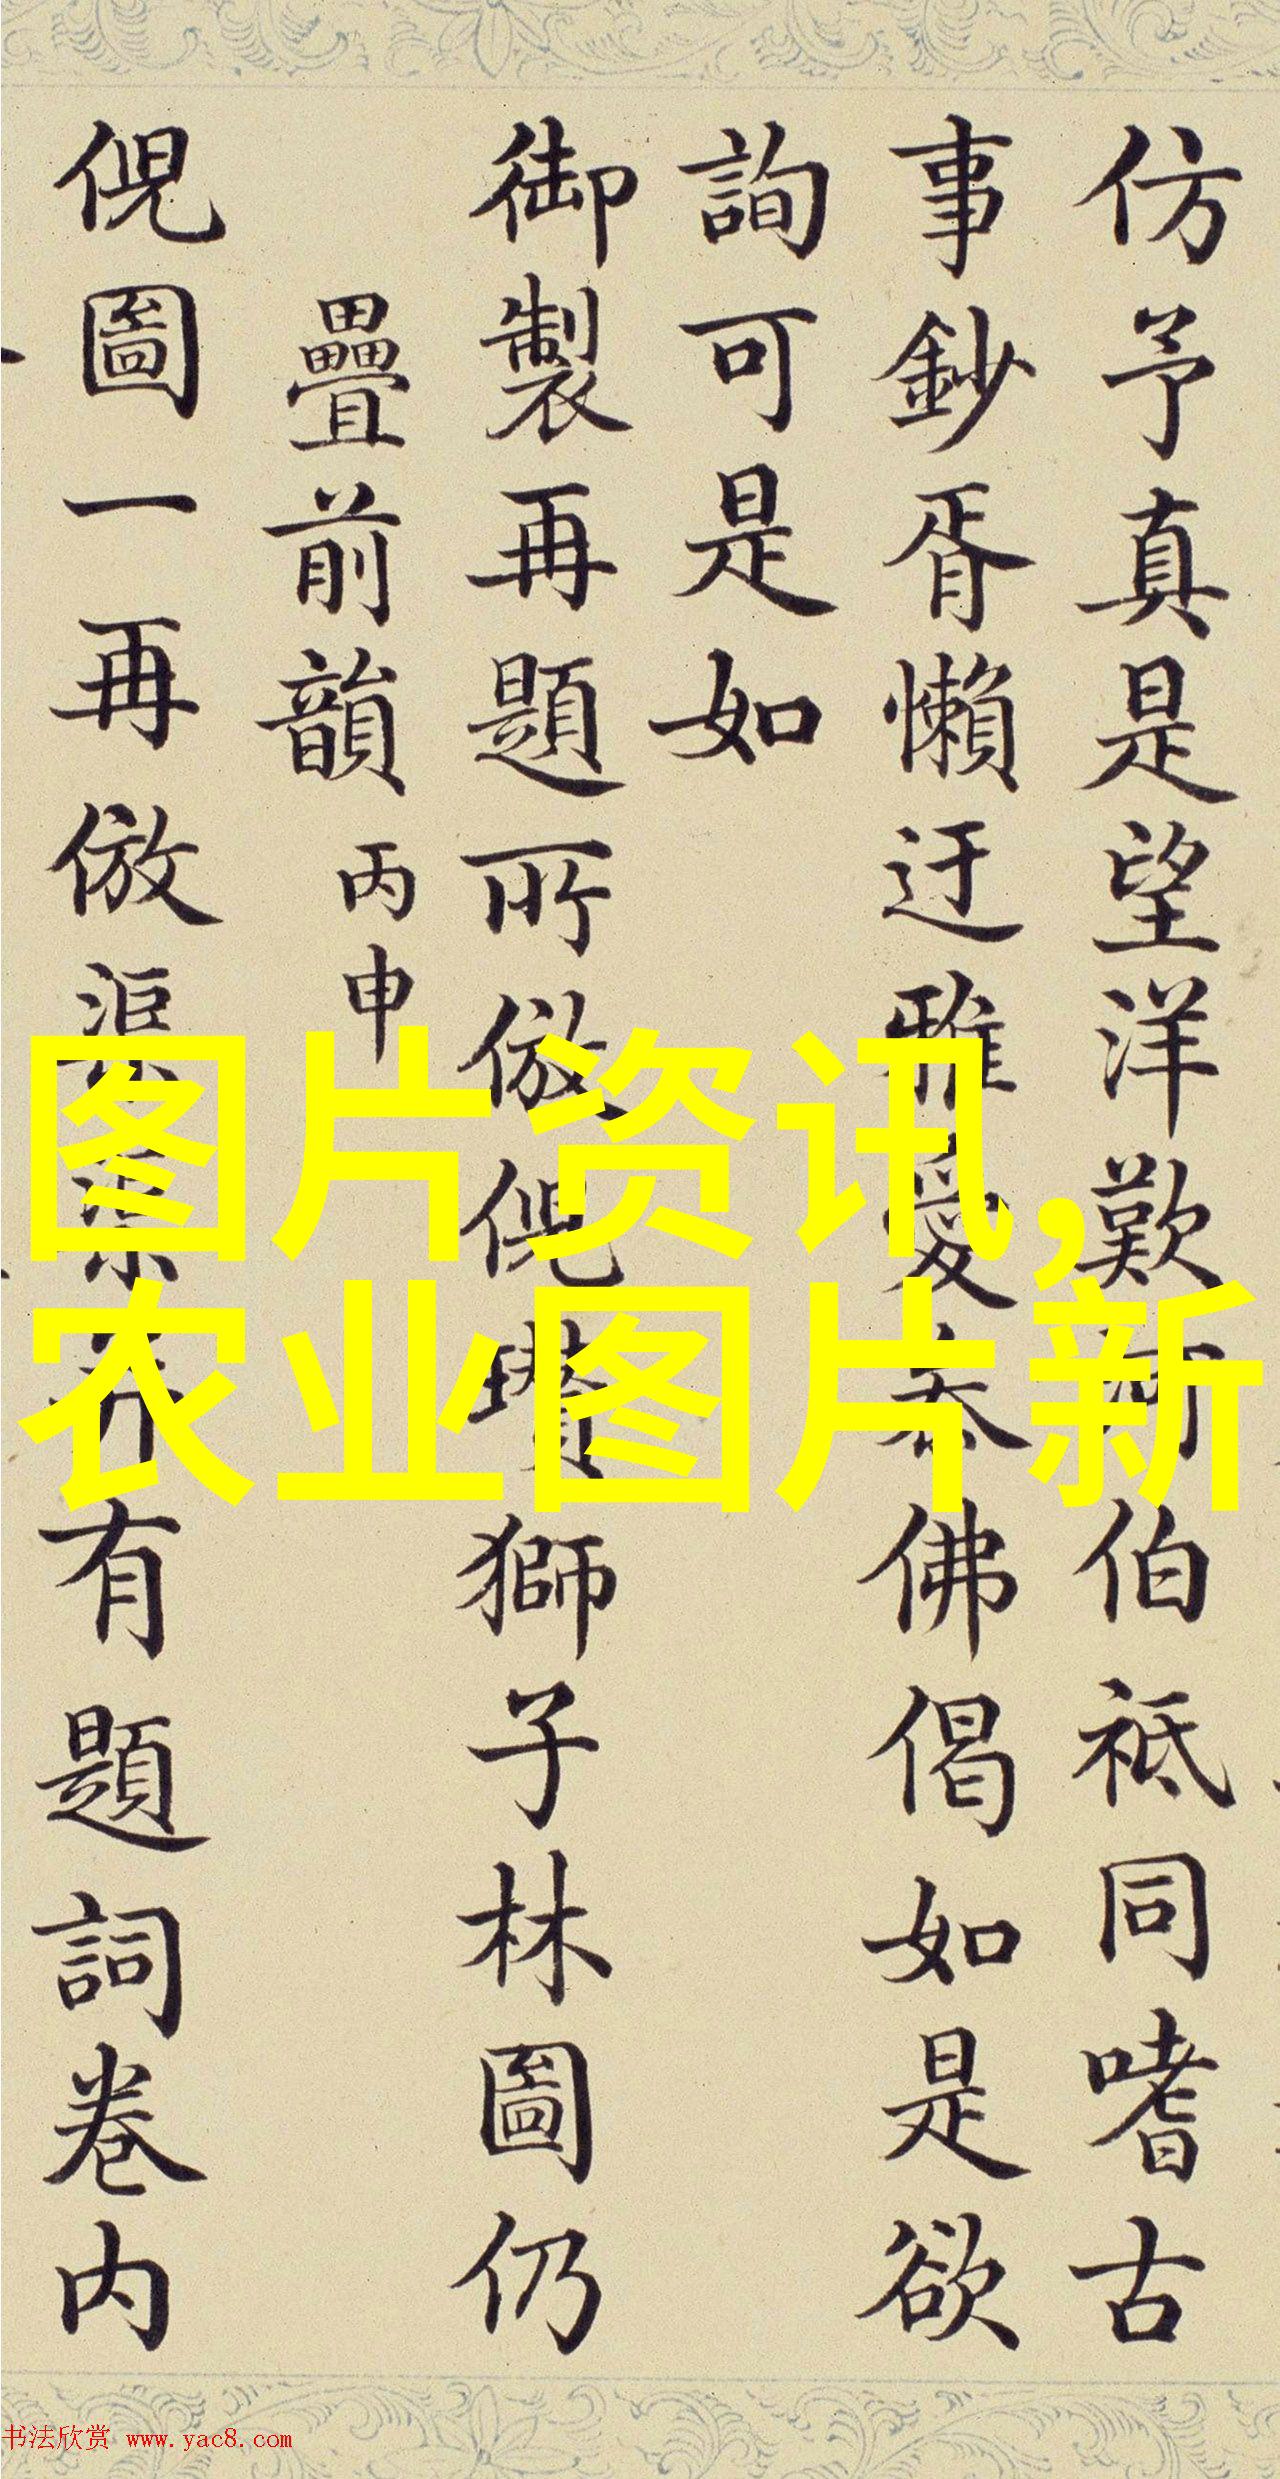 仿予真是望洋歎河伯祇同嗜古
事鈔胥懶迂雅愛佛偈如是欲
詢可是如
御製再題所倣倪瓚獅子林圖仍
疊前韻 丙申
倪圖一再倣有題詞卷内
图片资讯,
农业图片新
书法欣赏 www.yac8.com